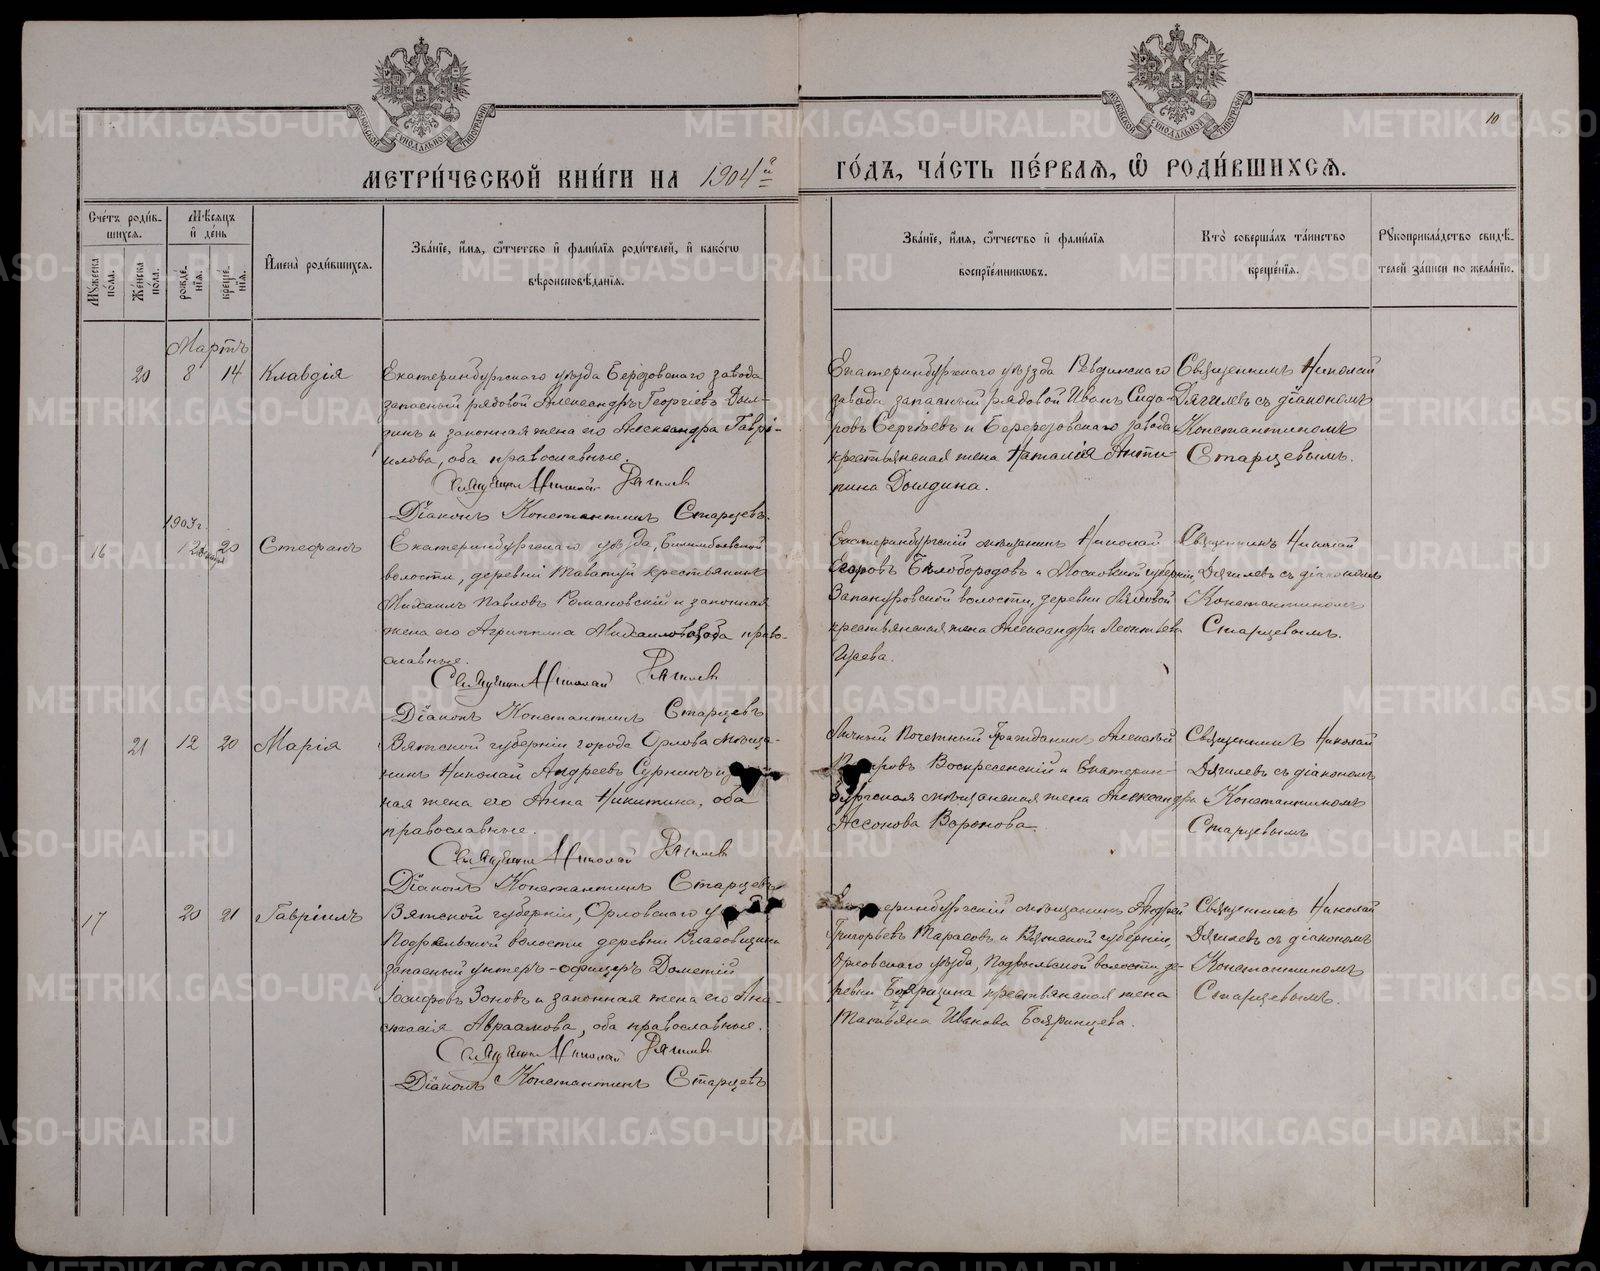 МОСКОВСКОЙ СѴНОДАЛЬНОЙ ТИПОГРАФІИ
МОСКОВСКОЙ СѴНОДАЛЬНОЙ ТИПОГРАФІИ
10
МЕТРИ́ЧЕСКОЙ КНИ́ГИ НА 1904й
ГО́ДЪ, ЧА́СТЬ ПЕ́РВАѦ, Ѡ҆ РОДИ́ВШИХСѦ.
Сче́тъ роди́в-
шихсѧ.
Мꙋ́жеска по́ла.
Же́нска по́ла.
Мѣ́сѧцъ
и҆ де́нь
рожде́-
нїѧ.
креще́-
нїѧ.
И҆мена̀ роди́вшихсѧ.
Зва́нїе, и҆́мѧ, ѻ҆́тчетсво и҆ фами́лїѧ роди́телей, и҆ како́гѡ
вѣроисповѣ́данїѧ.
Зва́нїе, и҆́мѧ, ѻ҆́тчество и҆ фами́лїѧ
воспрїе́мникѡвъ.
Кто̀ соверша́лъ та́инство
креще́нїѧ.
Рꙋкоприкла́дство свидѣ́-
телей за́писи по жела́нїю.
Мартъ
20 8 14 Клавдія
Екатеринбургскаго уѣзда Березовскаго завода
запасный рядовой Александръ Георгіевъ Дыл-
динъ и законная жена его Александра Гаврі-
илова, оба православные.
Священникъ Николай Дягилевъ
Діаконъ Константинъ Старцевъ.
Екатеринбургскаго уѣзда Ревдинскаго
завода запасный рядовой Иванъ Сидо-
ровъ Сергѣевъ и Березовскаго завода
крестьянская жена Наталія Анти-
пина Дылдина.
Священникъ Николай
Дягилевъ съ діакономъ
Константиномъ
Старцевымъ.
1903 г.
16 12 20 Стефанъ
Екатеринбургскаго уѣзда, Билимбаевской
волости, деревни Таватуй крестьянинъ
Михаилъ Павловъ Романовскій и законная
жена его Агриппина Михаилова, оба право-
славные.
Священникъ Николай Дягилевъ
Діаконъ Константинъ Старцевъ
Екатеринбургскій мѣщанинъ Николай
Егоровъ Бѣлобородовъ и Московской губерніи,
волости, деревни
крестьянская жена Александра Леонтьева
Священникъ Николай
Дягилевъ съ діакономъ
Константиномъ
Старцевымъ.
21 12 20 Марія
Вятской губерніи города Орлова мѣща-
нинъ Николай Андреевъ Суркинъ и
ная жена его Анна Никитина, оба
православные.
Священникъ Николай Дягилевъ
Діаконъ Константинъ Старцевъ
Личный Почетный Гражданинъ Алексѣй
Воскресенскій и Екатерин-
бургская мѣщанская жена Александра
Ассонова Воронова.
Священникъ Николай
Дягилевъ съ діакономъ
Константиномъ
Старцевымъ
17 20 21 Гавріилъ
Вятской губерніи, Орловскаго
волости деревни Власовщина
запасный унтеръ-офицеръ Дометій
Зоновъ и законная жена его Ана-
стасія Авраамова, оба православные.
Священникъ Николай Дягилевъ
Діаконъ Константинъ Старцевъ
Екатеринбургскій мѣщанинъ Андрей
Григорьевъ Тарасовъ и Вятской губерніи,
Орловскаго уѣзда, волости, де-
ревни крестьянская жена
Татьяна Иванова Бояринцева.
Священникъ Николай
Дягилевъ съ діакономъ
Константиномъ
Старцевымъ.
METRIKI.GASO-URAL.RU